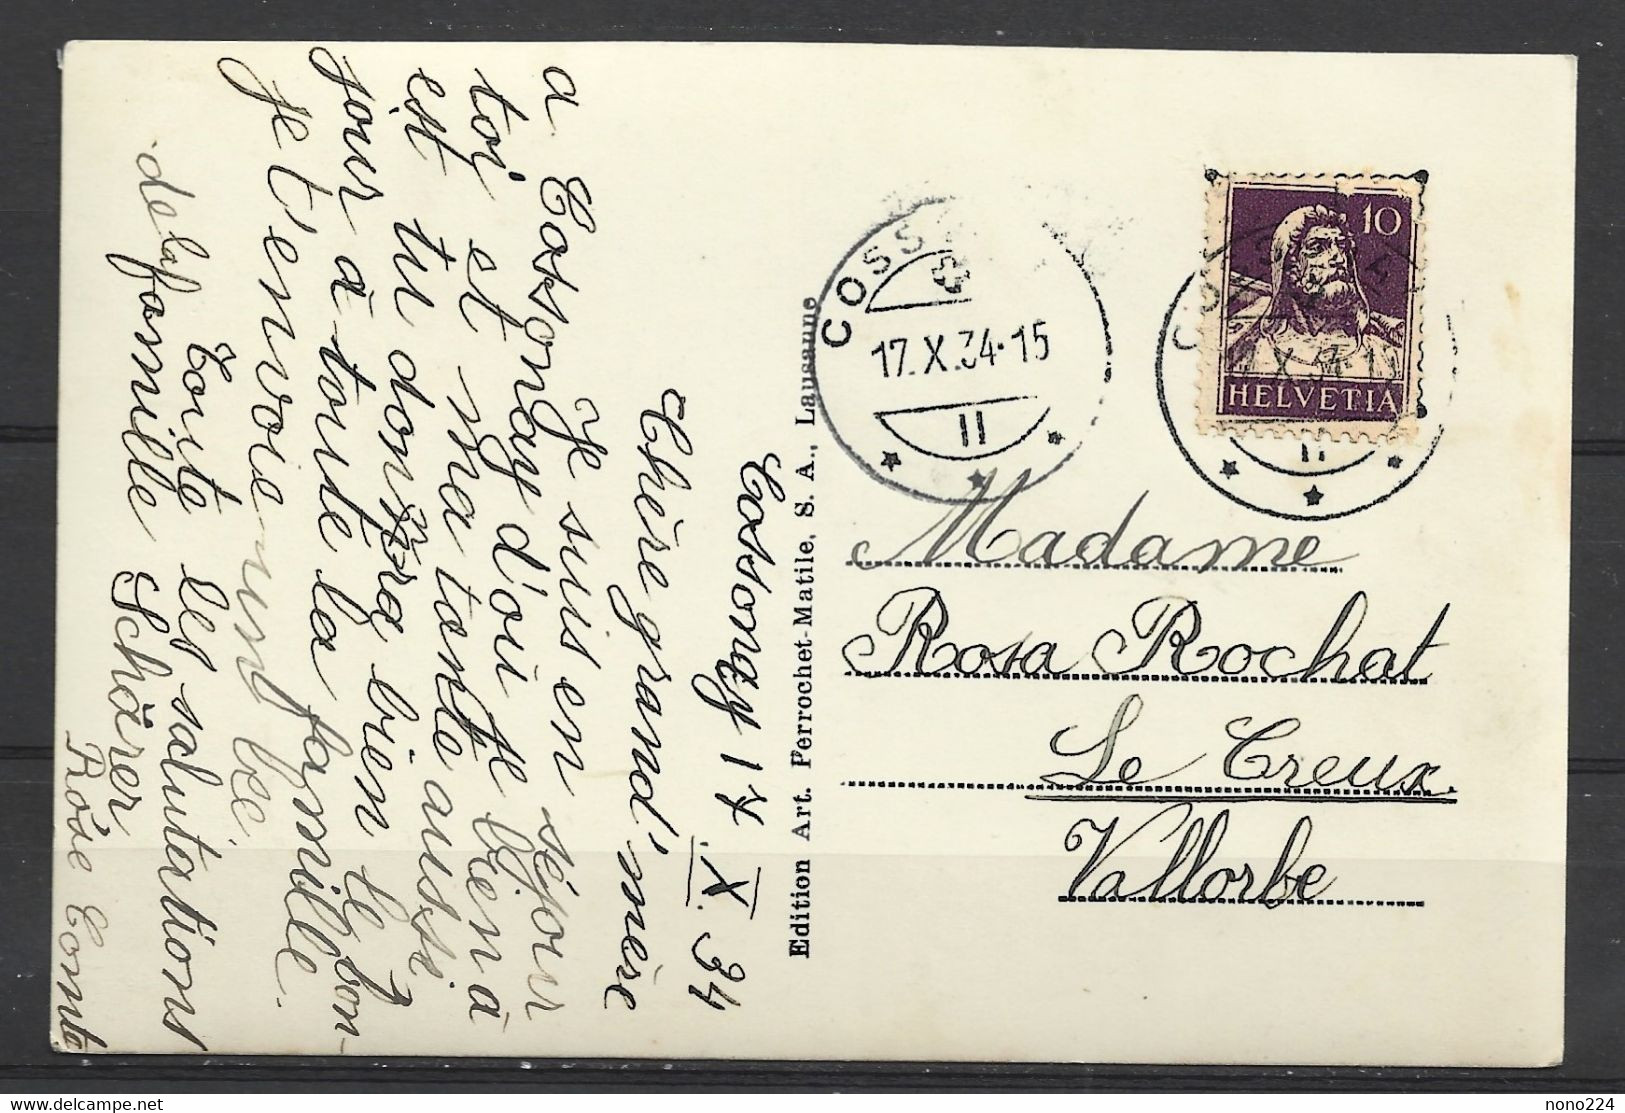 Cossonay 14 X. 34
Chère grand'mère
Je suis en séjour
a Cossonay d'où je viens à
toi et ma tante aussi
est tu donnera bien le bon-
jour à toute la famille.
Je t'envoie
Toute les salutations
de la famille Schärer
Rose Comte
Edition Art. Perrochet-Matile, S. A., Lausanne
COSS
17.X.34-15
II
10
HELVETIA
Madame
Rosa Rochat
Le Creux.
Vallorbe
nono224